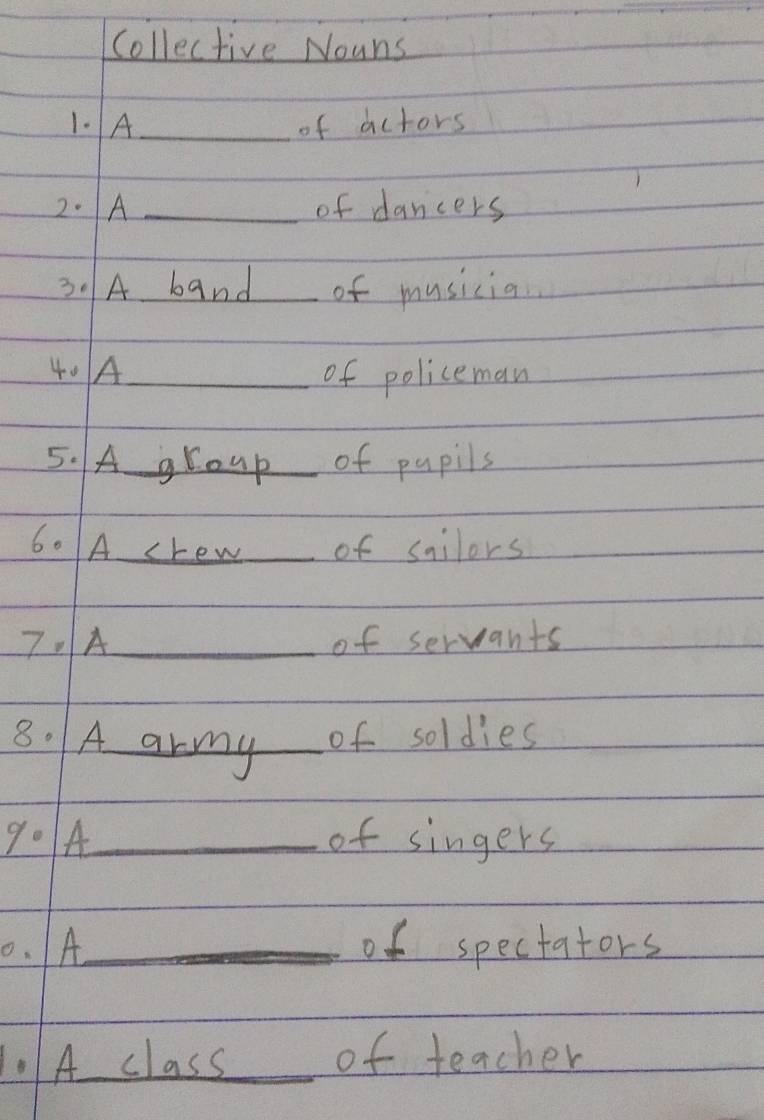 Collective Nouns
1. A ________ of actors
2. A ________ of dancers
3. A band of musician
4. A ________ of policeman
5. A group of pupils
6. A crew of sailors
7. A ________ of servants
8. A army of soldies
9. A ________ of singers
0. A ________ of spectators
1. A class of teacher